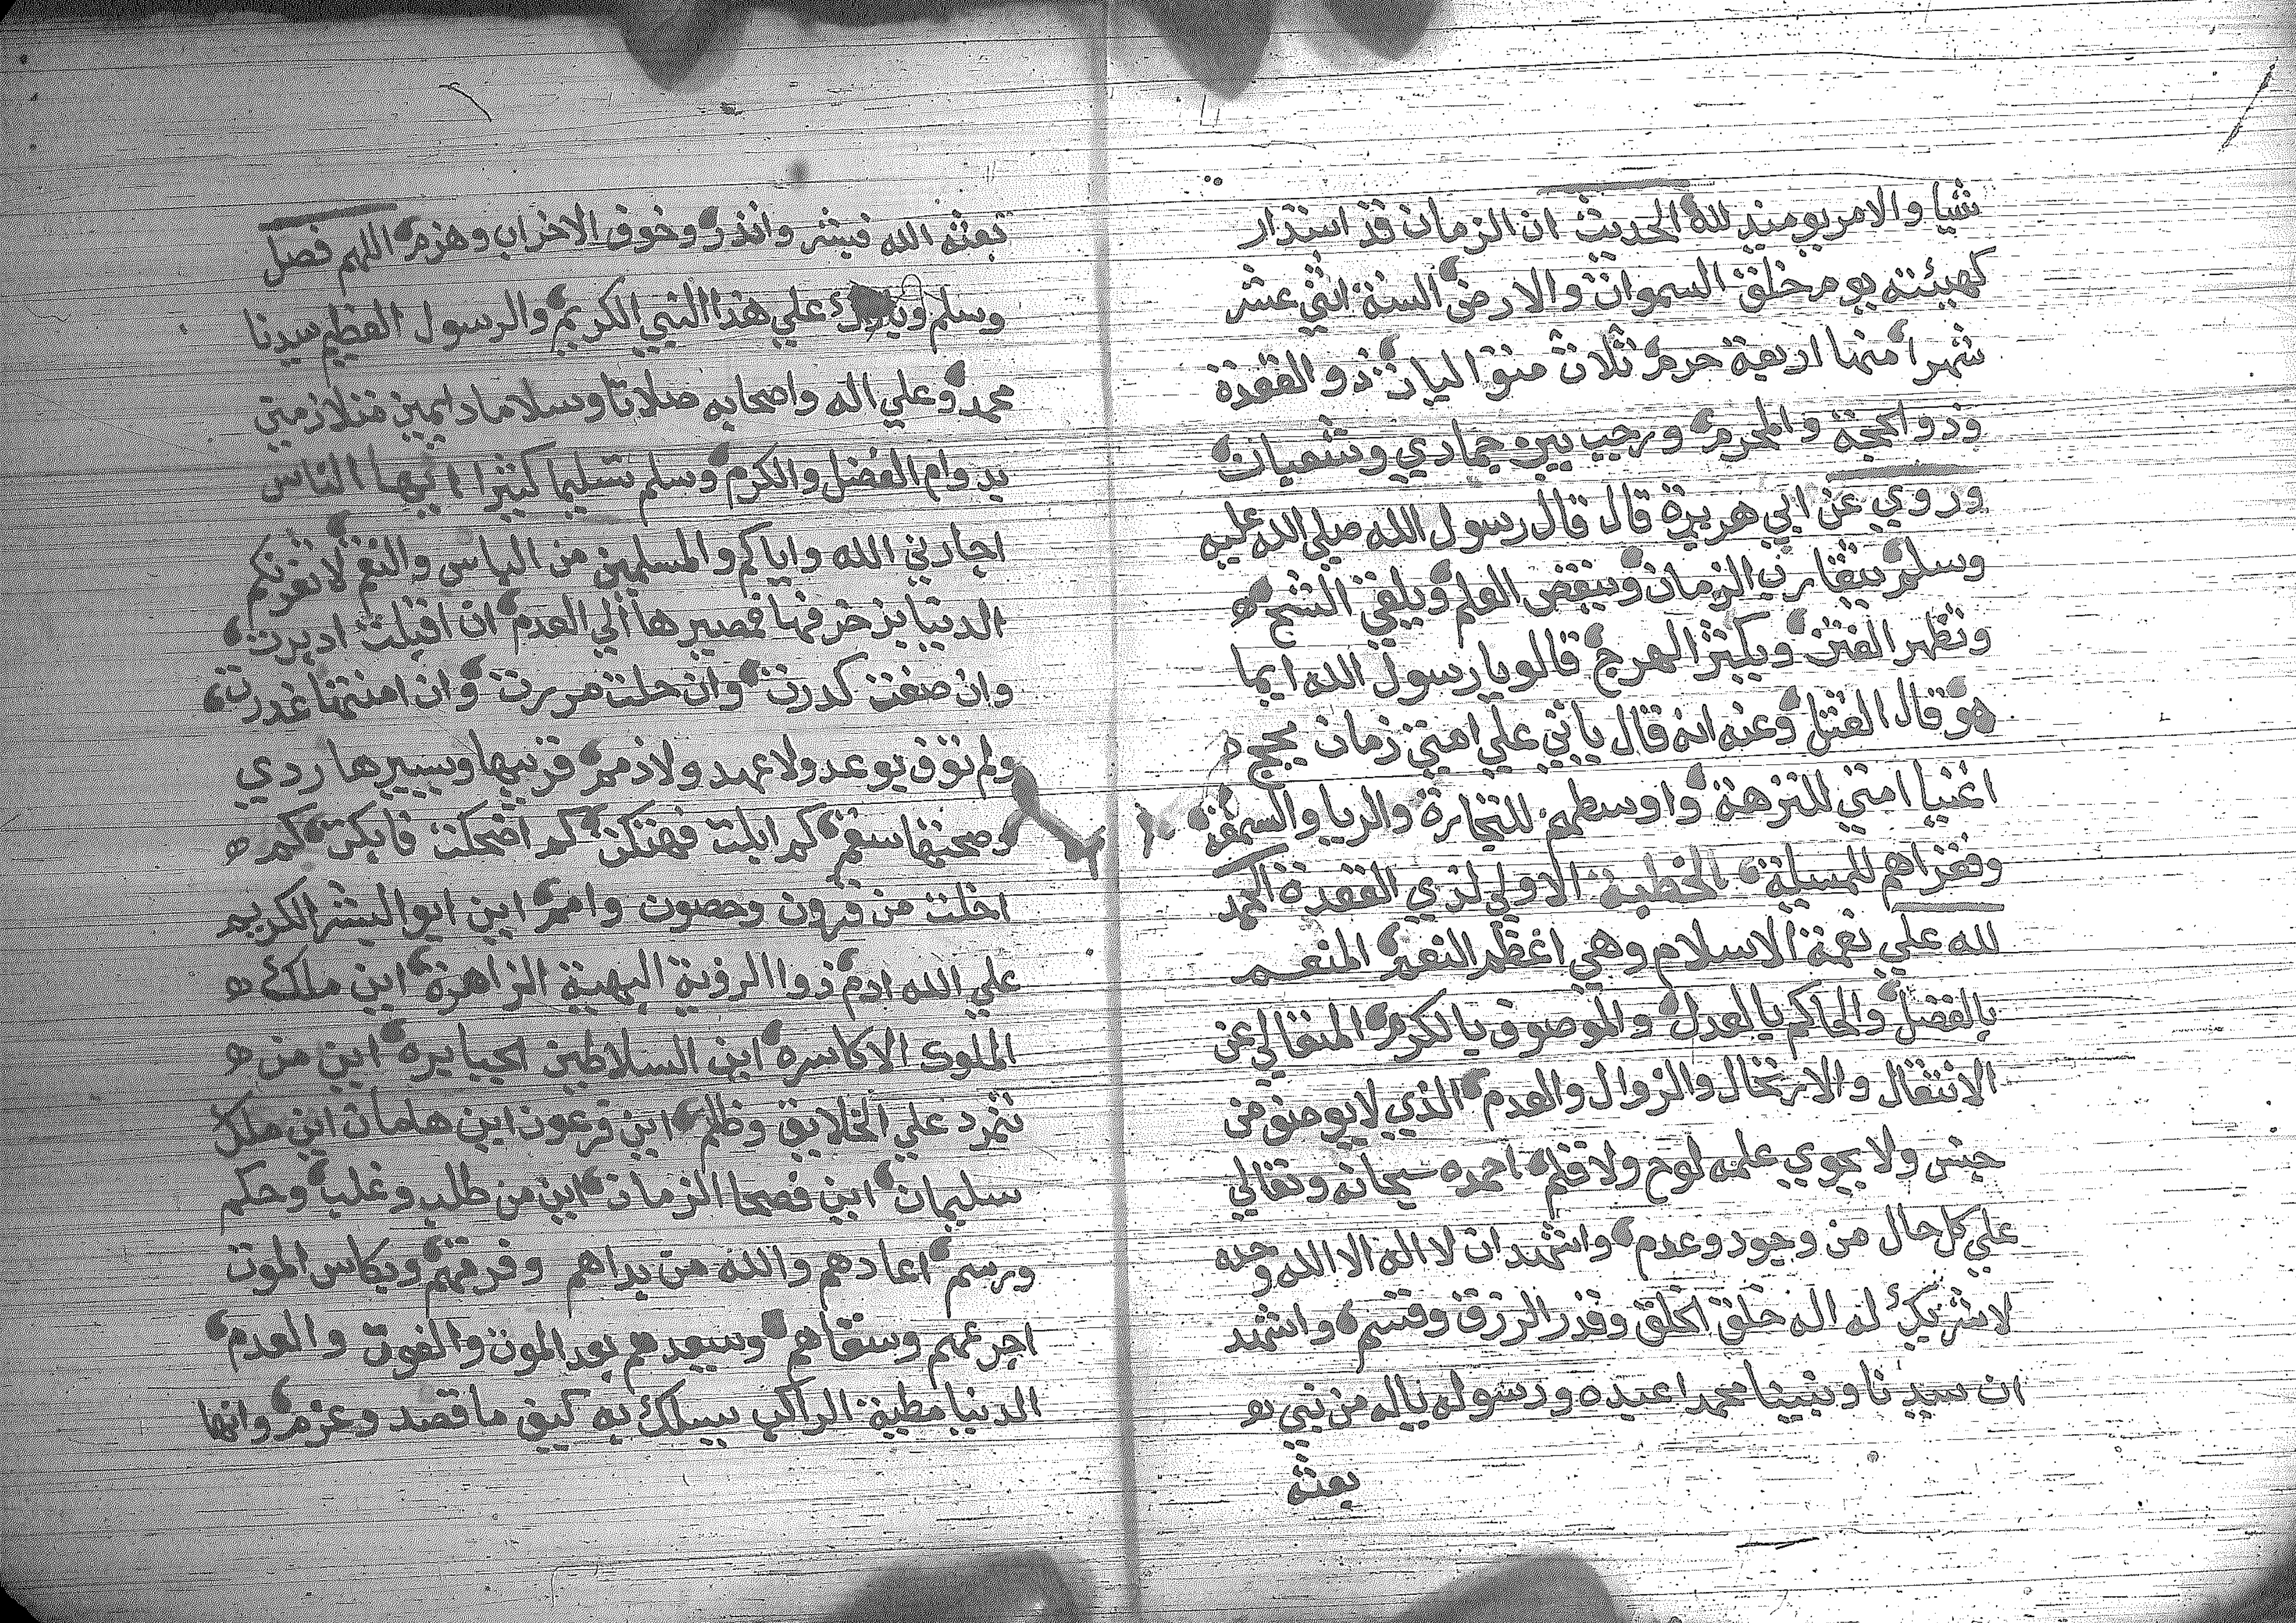 شيا والامر يوميذ لله الحديث ان الزمان قد استدار
كهيئته يوم خلق السموات والارض السنة اثني عشر
شهرا منها اربعة حرم ثلاث متواليات ذو القعدة
وذو الحجة والمحرم ورجب بين جمادي وشعبان
وروي عن ابي هريرة قال قال رسول الله صلي الله عليه
وسلم يتقارب الزمان وينقض العلم ويلقي الشح ه
وتظهر الفتن ويكثر الهرج قالو يا رسول الله ايما
هو قال القتل وعنه انه قال ياتي علي امتي زمان يحج ه
اغنيا امتي للنزهة واوسطهم للتجارة والريا والسمعة
وفقراهم للمسيلة الخطبة الاولي لذي القعدة الحمد
لله علي نعمة الاسلام وهي اعظم النعم المنعم
بالفضل والحاكم بالعدل والموصوف بالكرم المتعالي عن
الانتقال والارتحال والزوال والعدم الذي لا يوصف من
جنس ولا يحوي علمه لوح ولا قلم احمده سبحانه وتعالي
علي كل حال من وجود وعدم واشهد ان لا اله الا الله وحده
لا شريك له اله خلق الخلق وقدر الرزق وقسم واشهد
ان سيدنا ونبينا محمدا عبده ورسوله ياله من نبي
بعثه
بعثه الله فبشر وانذر وخوف الاحزاب وهزم اللهم فصل
وسلم وبارك علي هذا النبي الكريم والرسول العظيم سيدنا
محمد وعلي اله واصحابه صلاتا وسلاما دايمين متلازمين
بدوام الفضل والكرم وسلم تسليما كثيرا ايها الناس
اجارني الله واياكم والمسلمين من الباس والنقم لا تغرنكم
الدنيا بزخرفها فمصيرها الي العدم ان اقبلت ادبرت
وان صفت كدرت وان حلت مررت وان امنتها غدرت
ولم توف بوعد ولا عهد ولا ذمم قريبها ويسيرها ردي
وصحتها سقم كم ابلت فهتكت كم اضحكت فابكت كم ه
اخلت من قرون وحصون وامم اين ابو البشر الكريم
علي الله ادم ذو الروية البهية الزاهرة اين ملك ه
الملوك الاكاسره اين السلاطين الجبابره اين من ه
تنمرد علي الخلايق وظلم اين فرعون اين هامان اين ملك
سليمان اين فصحا الزمان اين من طلب وغلب وحكم
ورسم اعادهم والله من بداهم وفرقهم وبكاس الموت
اجرعهم وسقاهم وسيعدهم بعد الموت والفوت والعدم
الدنيا مطية الراكب يسلك به كيف ما قصد وعزم وانها